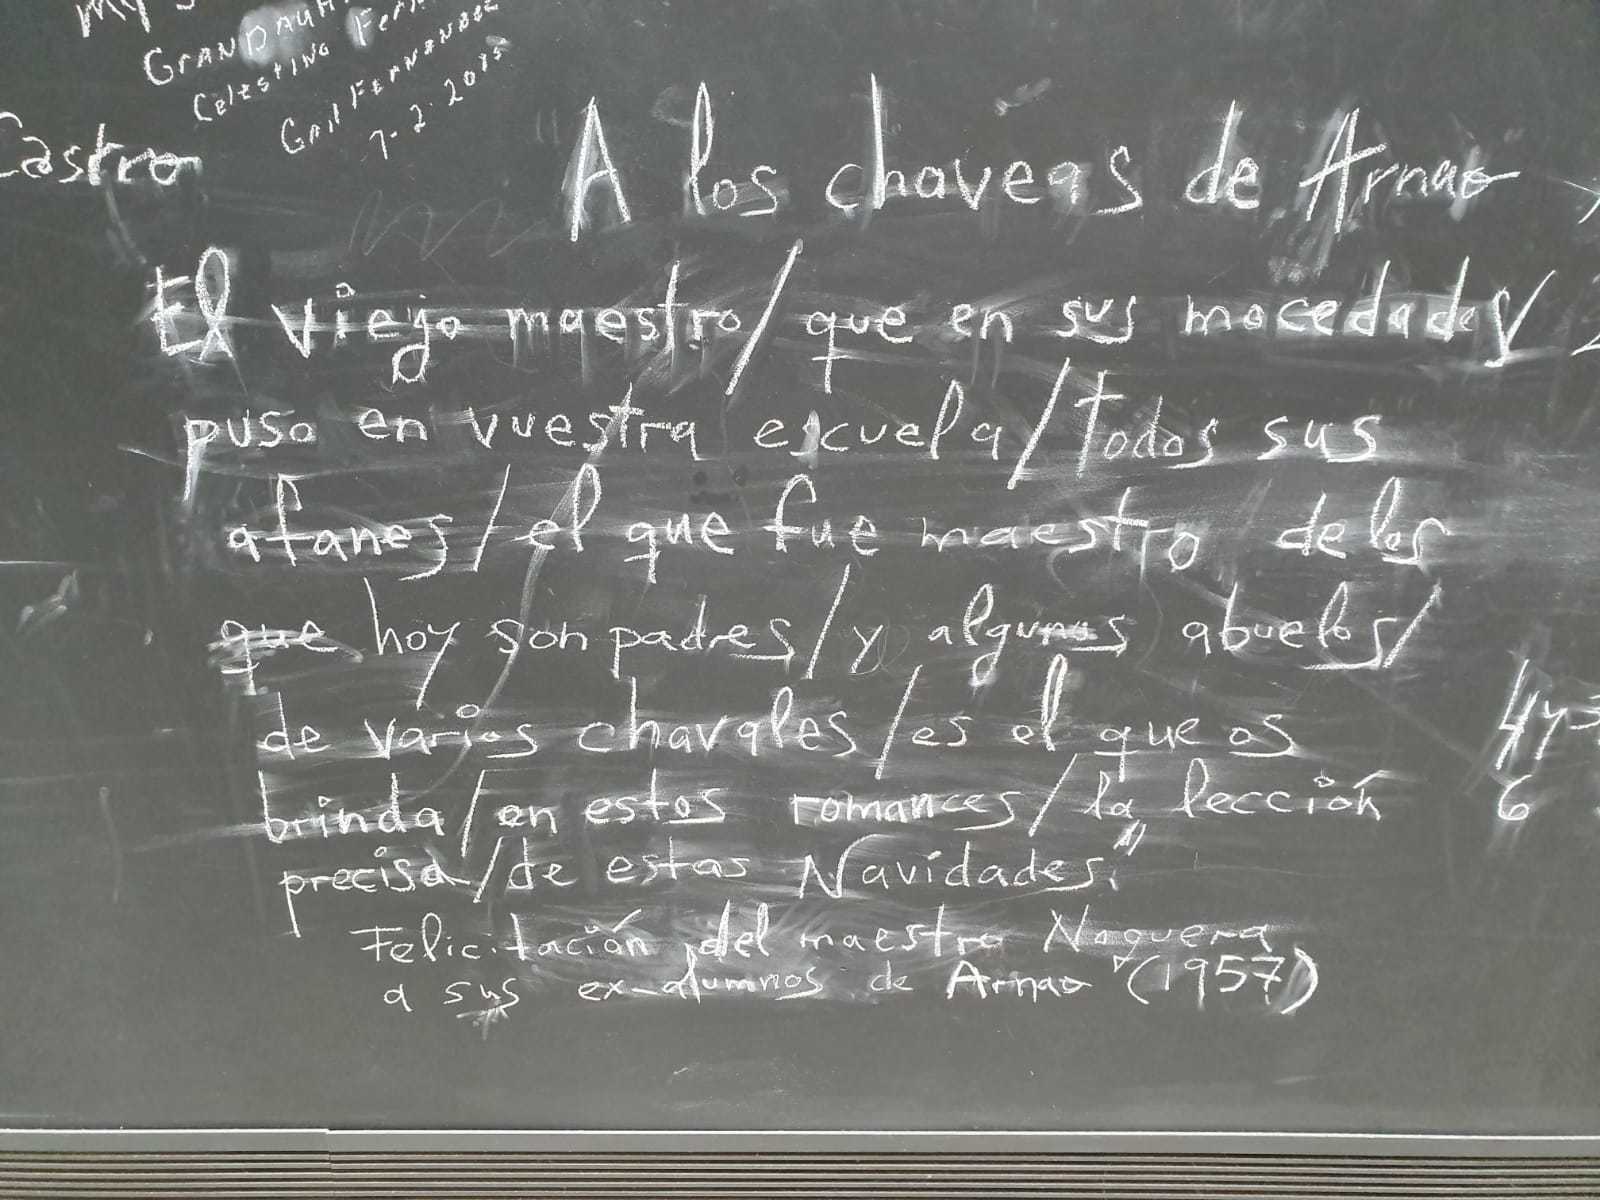 my
GRANDAUH
CELESTINO Fern
GAIL FERNANDEZ
7-2-2015
Castro
A los chaveas de Arnao
El viejo maestro/que en sus mocedades/
puso en vuestra escuela/todos sus
afanes/el que fue maestro de los
que hoy son padres/y algunos abuelos/
de varios chavales/es el que os
brinda/en estos romances/la lección
precisa/de estas Navidades."
Felicitación del maestro Noguera
a sus ex-alumnos de Arnao (1957)
4 y 5
6